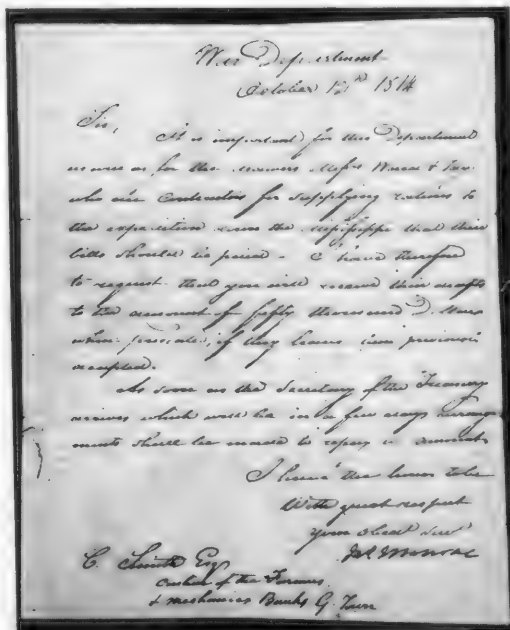 War Department
October 1814
Sir,
It is important for this Department
as well as for the Messrs Ward &
who are Contractors for supplying rations to
the expedition down the Mississippi that their
bills should be paid. I have therefore
to request that you will receive their drafts
to the amount of fifty thousand
when presented, if they have been previously
accepted.
As soon as the Secretary of the Treasury
arrives which will be in a few days arrange
ments shall be made to repay amount
I have the honor to be
With great respect
your obed serv
Jas Monroe
C. Smith Esq
cashier of the Farmers
& Mechanics Bank G. Town